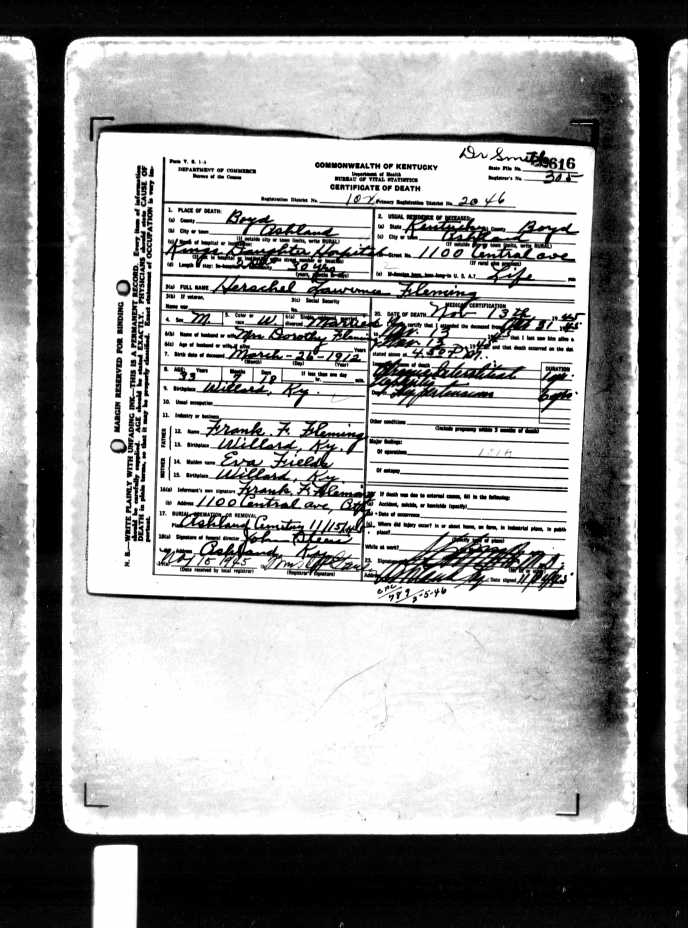 Dr Smith
Form V. S. 1-A
DEPARTMENT OF COMMERCE
Bureau of the Census
COMMONWEALTH OF KENTUCKY
Department of Health
BUREAU OF VITAL STATISTICS
CERTIFICATE OF DEATH
State File No. 616
Registrar's No. 305
Registration District No. 102 Primary Registration District No. 2046
1. PLACE OF DEATH:
(a) County Boyd
(b) City or town Ashland
(If outside city or town limits, write RURAL)
(c) Name of hospital or institution
Kings Daughter Hospital
(d) Length of stay: In hospital 30 yrs
2. USUAL RESIDENCE OF DECEASED:
(a) State Kentucky (b) County Boyd
(c) City or town
(d) Street No. 1100 Central ave
(If rural give location)
(e) If foreign born, how long in U. S. A.? Life
3(a) FULL NAME Herschel Lawrence Fleming
3(b) If veteran, Name war
3(c) Social Security No.
4. Sex M 5. Color or race W. 6(a) Married
6(b) Name of husband or wife Mrs Dorothy Fleming
6(c) Age of husband or wife Years
7. Birth date of deceased March-26-1912
(Month) (Day) (Year)
8. AGE: Years 33 Months 7 Days 18 If less than one day
hr. min.
9. Birthplace Willard, Ky.
10. Usual occupation
11. Industry or business
FATHER
12. Name Frank. F. Fleming
13. Birthplace Willard, Ky.
MOTHER
14. Maiden name Eva Fields
15. Birthplace Willard, Ky.
16(a) Informant's own signature Frank. F. Fleming
(b) Address 1100 Central ave, City
17. BURIAL, CREMATION OR REMOVAL
Place Ashland Cemetery 11/15/
18(a) Signature of funeral director John Steen
(b) Address Ashland Ky
Nov 15 1945
(Date received by local registrar) (Registrar's Signature)
MEDICAL CERTIFICATION
20. DATE OF DEATH Nov 13th 1945
21. I hereby certify that I attended the deceased from Oct 31 1945
Nov 13 that I last saw him alive
on Nov 13 1945 and that death occurred on the date
stated above at 4:50 P. M.
Immediate cause of death DURATION
Chronic Interstitial
Nephritis
Hypertension
Other conditions
(Include pregnancy within 3 months of death)
Major findings:
Of operations
Of autopsy
22. If death was due to external causes, fill in the following:
(a) Accident, suicide, or homicide (specify)
(b) Date of occurrence
(c) Where did injury occur? In or about home, on farm, in industrial place, in public place?
(Specify type of place)
While at work?
23. Signature M.D.
Address Ashland Ky Date signed
789 2-5-46
MARGIN RESERVED FOR BINDING
N. B.—WRITE PLAINLY WITH UNFADING INK—THIS IS A PERMANENT RECORD. Every item of information
should be carefully supplied. AGE should be stated EXACTLY. PHYSICIANS should state CAUSE OF
DEATH in plain terms, so that it may be properly classified. Exact statement of OCCUPATION is very im-
portant.